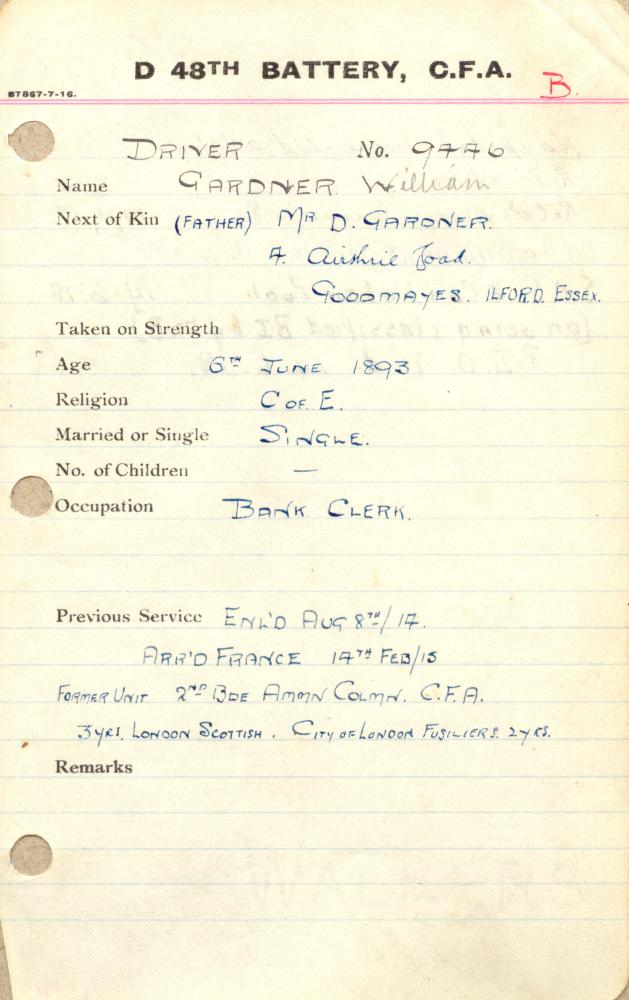 D 48TH BATTERY, C.F.A.
B.
B7867-7-16.
DRIVER No. 9446
Name GARDNER William
Next of Kin (FATHER) MR D. GARDNER.
4. Airthrie Road.
GOODMAYES. ILFORD. ESSEX.
Taken on Strength
Age 6TH JUNE 1893
Religion C OF E.
Married or Single SINGLE.
No. of Children —
Occupation BANK CLERK.
Previous Service ENL'D AUG 8TH/14.
ARR'D FRANCE 14TH FEB/15
FORMER UNIT 2ND BDE AMMN COLMN. C.F.A.
3 YRS. LONDON SCOTTISH. CITY OF LONDON FUSILIERS. 2 YRS.
Remarks